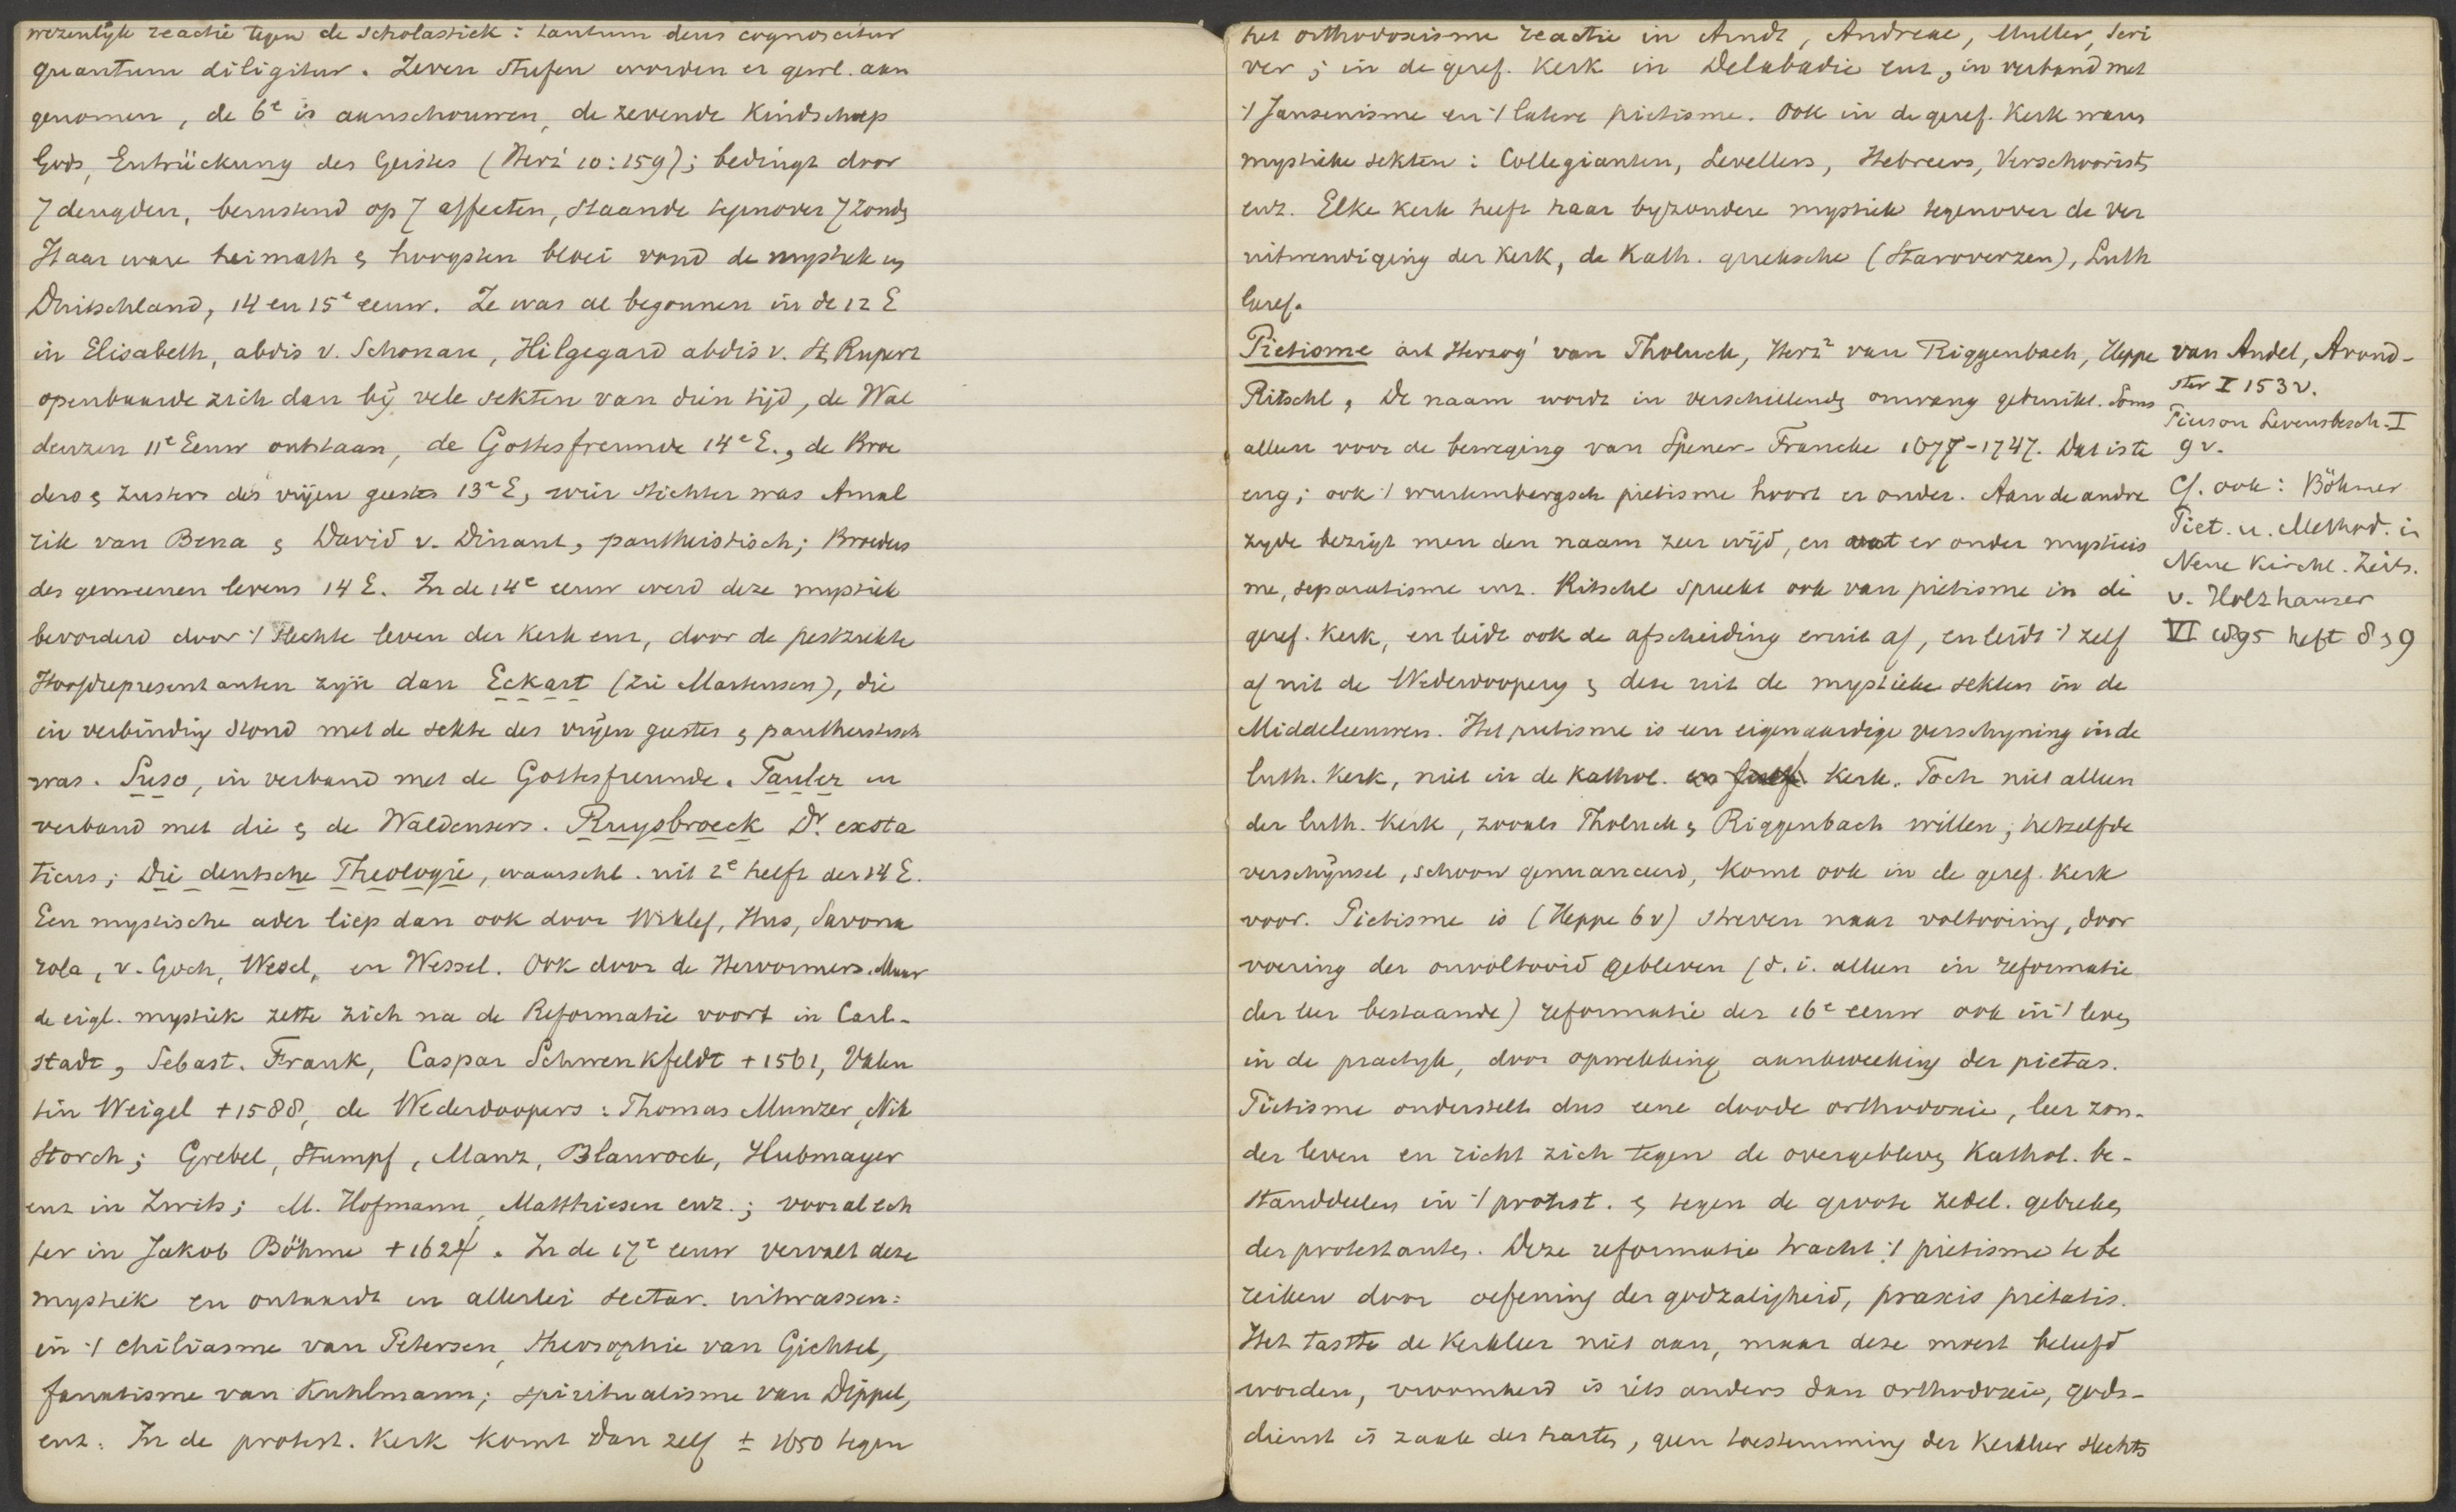 wezenlijk reactie tegen de Scholastiek: tantum deus cognoscitur
quantum diligitur. Zeven Stufen worden er gewl. aan
genomen, de 6e is aanschouwen, de zevende Kindschap
Gods, Entrückung des Geistes (Herz² 10:159); bedingt door
7 deugden, berustend op 7 affecten, staande tegenover 7 zonden
Haar ware heimath en hoogsten bloei vond de mystiek in
Duitschland, 14 en 15e eeuw. Ze was al begonnen in de 12 E
in Elisabeth, abdis v. Schonau, Hilgegard abdis v. St. Rupert
openbaarde zich dan bij vele sekten van dien tijd, de Wal
denzen 11e Eeuw ontstaan, de Gottesfreunde 14e E., de Broe
ders en Zusters des vrijen geestes 13e E, wier stichter was Amal
rik van Bena en David v. Dinant, pantheistisch; Broeders
des gemeenen levens 14 E. In de 14e eeuw werd deze mystiek
bevorderd door 't slechte leven der Kerk enz, door de pestziekte
Hoofdrepresentanten zijn dan Eckart (zie Martensen), die
in verbinding stond met de sekte des vrijen geestes en pantheistisch
was. Suso, in verband met de Gottesfreunde. Tauler in
verband met die en de Waldensers. Ruysbroeck Dr. exsta
ticus; Die deutsche Theologie, waarschl. uit 2e helft der 14 E.
Een mystische ader liep dan ook door Wiklef, Hus, Savona
rola, v. Goch, Wesel, en Wessel. Ook door de Hervormers. Maar
de eigl. mystiek zette zich na de Reformatie voort in Carl-
stadt, Sebast. Frank, Caspar Schwenkfeldt +1561, Valen
tin Weigel +1588, de Wederdoopers: Thomas Munzer, Nik
Storch; Grebel, Stumpf, Manz, Blaurock, Hubmayer
enz in Zwits; M. Hofmann, Matthiesen enz.; vooral ech
ter in Jakob Böhme +1624. In de 17e eeuw vervalt deze
mystiek en ontaardt in allerlei sectar. uitwassen:
in 't chiliasme van Petersen, theosophie van Gichtel,
fanatisme van Kuhlmann; spiritualisme van Dippel,
enz. In de protest. Kerk komt dan zelf ± 1650 tegen
het orthodoxisme reactie in Arndt, Andreae, Muller, Scri
ver; in de geref. Kerk in Delabadie enz, in verband met
't Jansenisme en 't latere pietisme. Ook in de geref. Kerk waren
mystieke sekten: Collegianten, Levellers, Hebreers, Verschoorists
enz. Elke kerk heeft haar byzondere mystiek tegenover de ver
uitwendiging der Kerk, de Kath. grieksche (Staroverzen), Luth
Geref.
Pietisme art Herzog¹ van Tholuck, Herz² van Riggenbach, Heppe
Ritschl, De naam wordt in verschillende omvang gebruikt. Soms
alleen voor de beweging van Spener-Francke 1677-1747. Dat is te
eng; ook 't wurtembergsch pietisme hoort er onder. Aan de andre
zyde bezigt men den naam zeer wijd, en vat er onder mysticis
me, separatisme enz. Ritschl spreekt ook van pietisme in de
geref. Kerk, en leidt ook de afscheiding eruit af, en leidt 't zelf
af uit de Wederdoopery en deze uit de mystieke sekten in de
Middeleeuwen. Het pietisme is een eigenaardige verschyning in de
luth. Kerk, niet in de Kathol. en geref. Kerk. Toch niet alleen
der luth. Kerk, zooals Tholuck en Riggenbach willen; hetzelfde
verschijnsel, schoon genuanceerd, komt ook in de geref. Kerk
voor. Pietisme is (Heppe 6v) streven naar voltooiing, door
voering der onvoltooid gebleven (d.i. alleen in reformatie
der leer bestaande) reformatie der 16e eeuw ook in 't leven
in de practyk, door opwekking aankweeking der pietas.
Pietisme onderstelt dus eene doode orthodoxie, leer zon-
der leven en richt zich tegen de overgebleven Kathol. be-
standdeelen in 't protest. en tegen de groote zedel. gebreken
der protestanten. Deze reformatie tracht 't pietisme te be
reiken door oefening der godzaligheid, praxis pietatis.
Het tastte de Kerkleer niet aan, maar deze moest beleefd
worden, vroomheid is iets anders dan orthodoxie, gods-
dienst is zaak des harten, geen toestemming der Kerkleer slechts
van Andel, Avond-
ster I 153v.
Pierson Levensbesch. I
9v.
Cf. ook: Böhmer
Piet. u. Method. in
Neue Kirchl. Zeits.
v. Holzhauser
VI 1895 heft 8 en 9